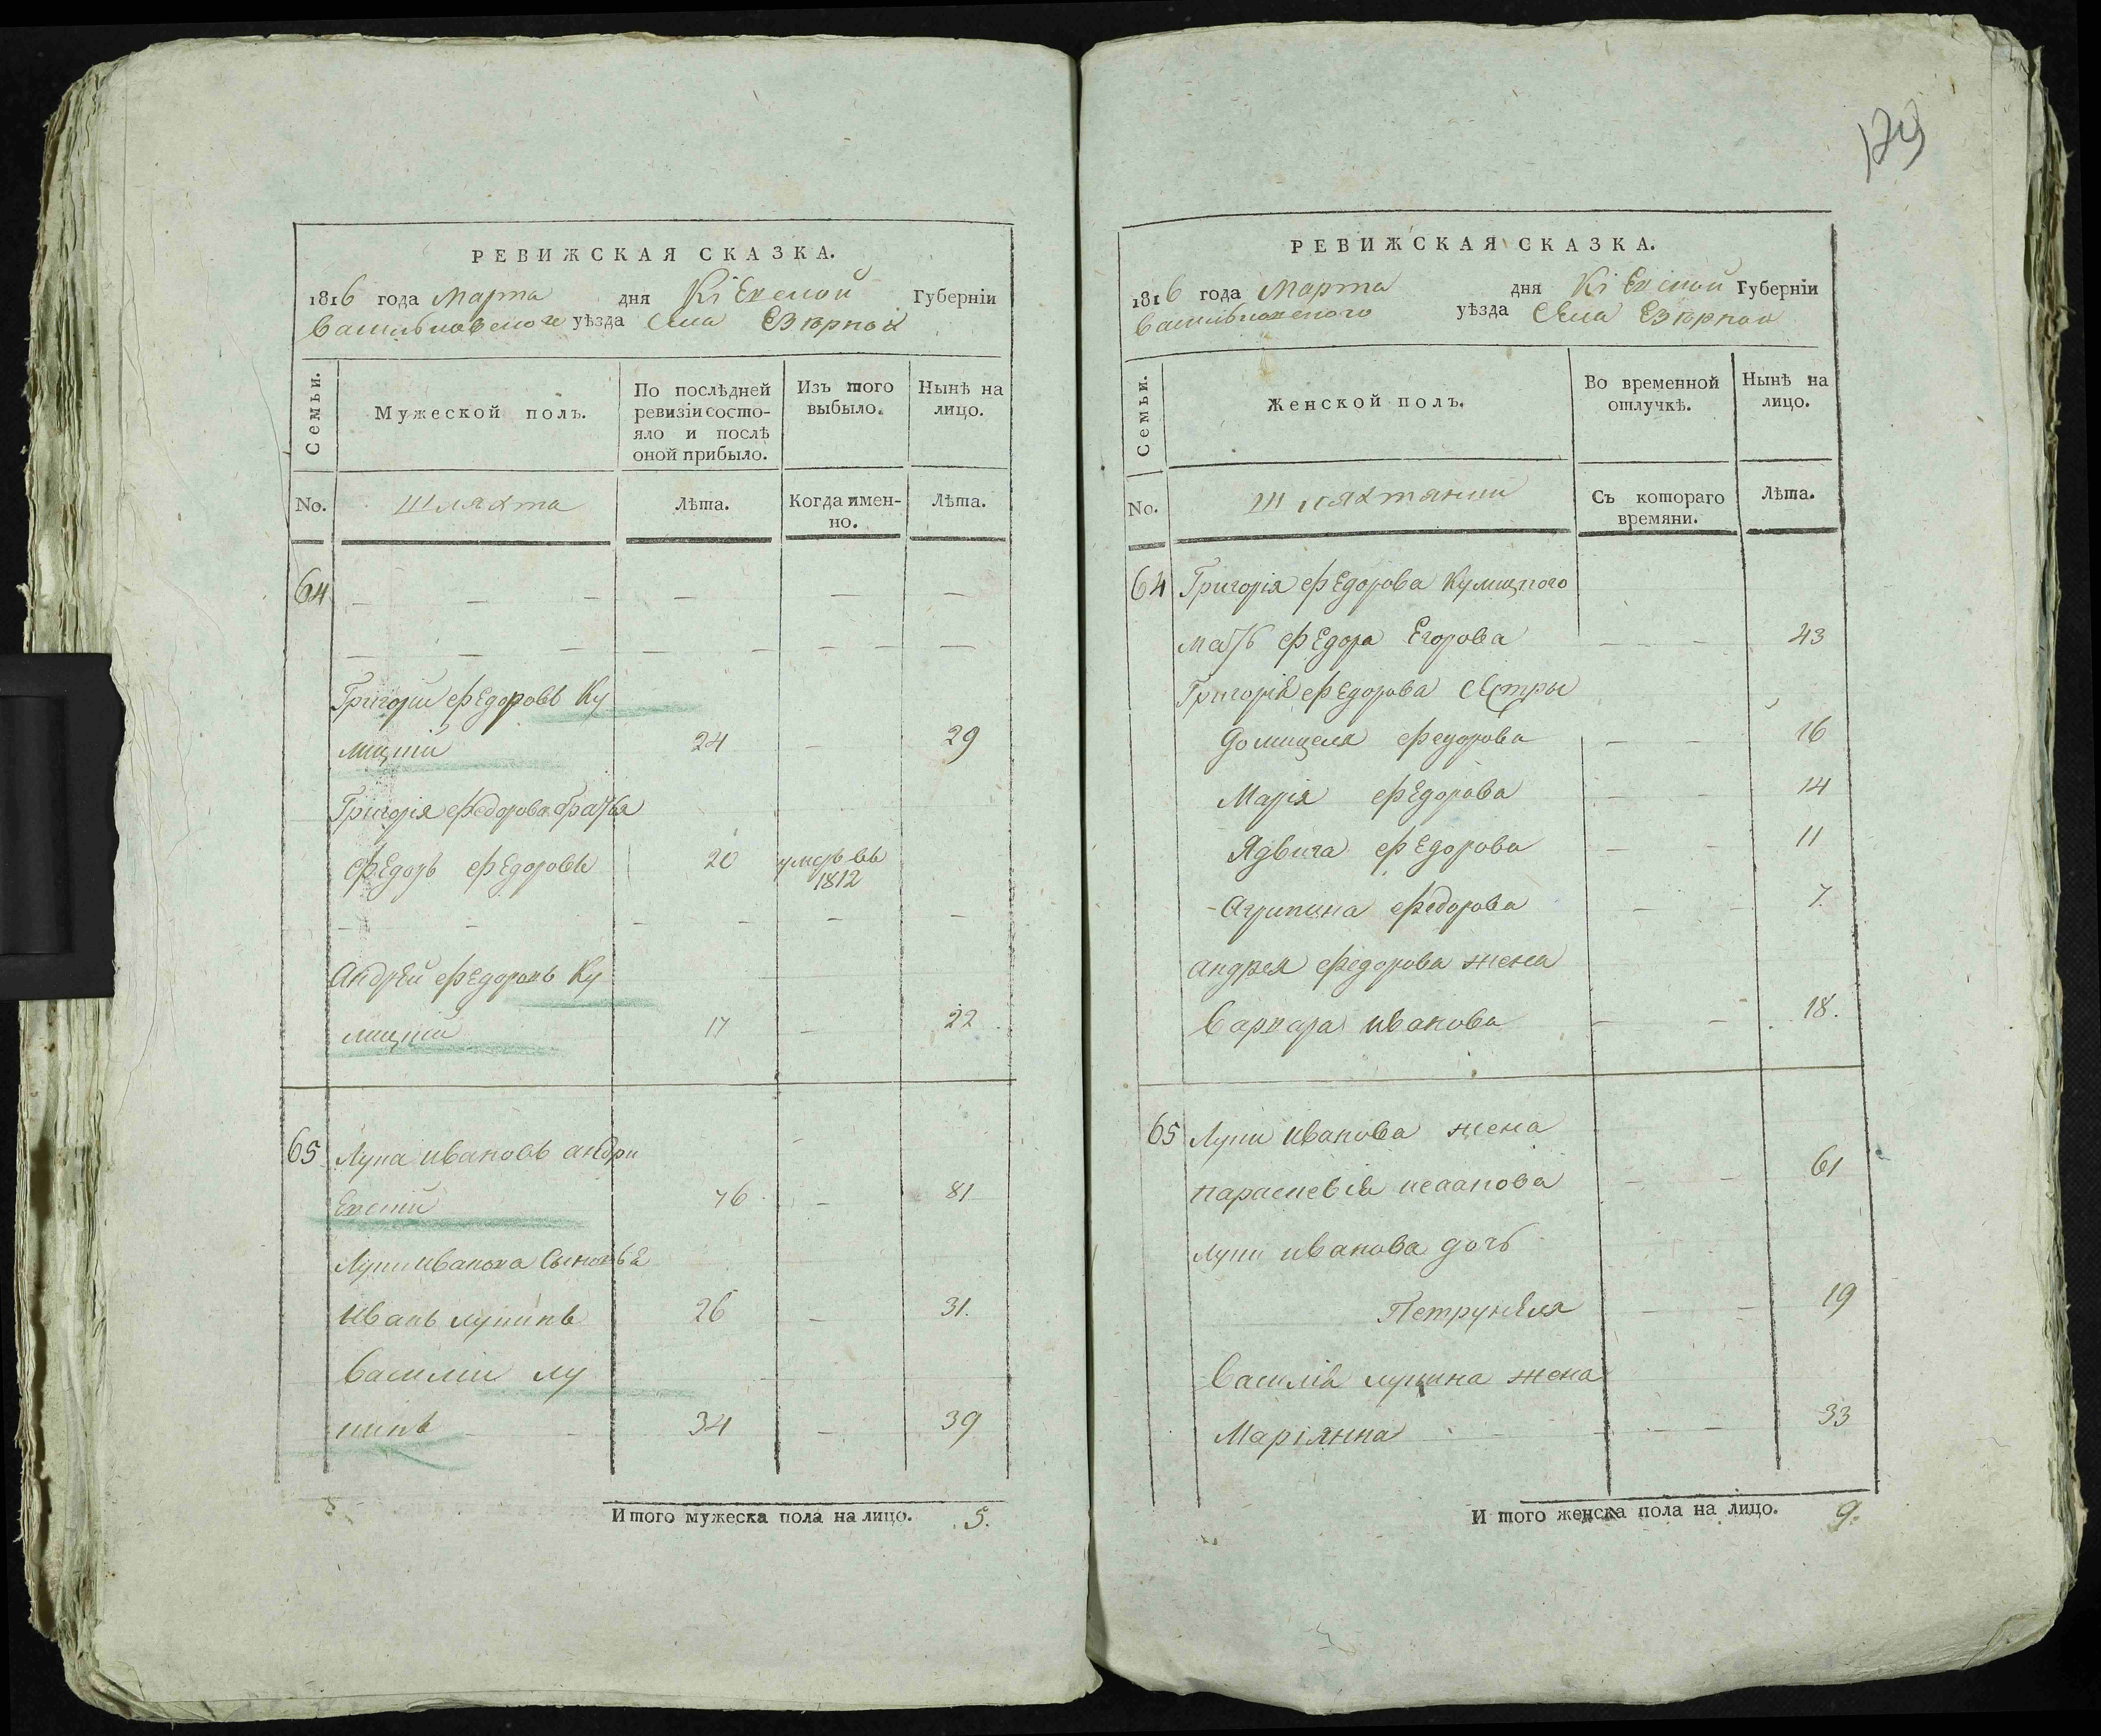 РЕВИЖСКАЯ СКАЗКА.
1816 года Марта дня Кіевской Губерніи
Васильковского уѣзда Села Езѣрной
Семьи.
Мужеской полъ.
По послѣдней ревизіи состояло и послѣ оной прибыло.
Изъ того выбыло.
Нынѣ на лицо.
No.
Шляхта
Лѣта.
Когда именно.
Лѣта.
64
Григорий Федоровъ Ку
мицкій 24 — 29
Григорія Федорова братья
Федоръ Федоровъ 20 умеръ въ 1812
Андрей Федоровъ Ку
мицкій 17 — 22
65 Лупа Ивановъ Андри
евский 76 — 81
Лупи Иванова Сыновья
Иванъ Лупинъ 26 — 31.
Василий Лу
пинъ 34 — 39
Итого мужеска пола на лицо. 5.
129
РЕВИЖСКАЯ СКАЗКА.
1816 года Марта дня Кіевской Губерніи
Васильковского уѣзда Села Езѣрной
Семьи.
Женской полъ.
Во временной отлучкѣ.
Нынѣ на лицо.
No.
Съ котораго времяни.
Лѣта.
64 Григорія Федорова Кумицкого
мать Федора Егорова — — 43
Григорія Федорова Сестры
Домицеля Федорова — — 16
Марія Федорова — — 14
Ядвига Федорова — — 11
Агрипина Федорова — — 7.
Андрея Федорова жена
Варвара Иванова — — 18.
65 Лупи Иванова жена
Параскевія — — 61
Лупи Иванова дочь
Петрунеля — — 19
Василія Лупина жена
Маріянна — — 33
Итого женска пола на лицо. 9.